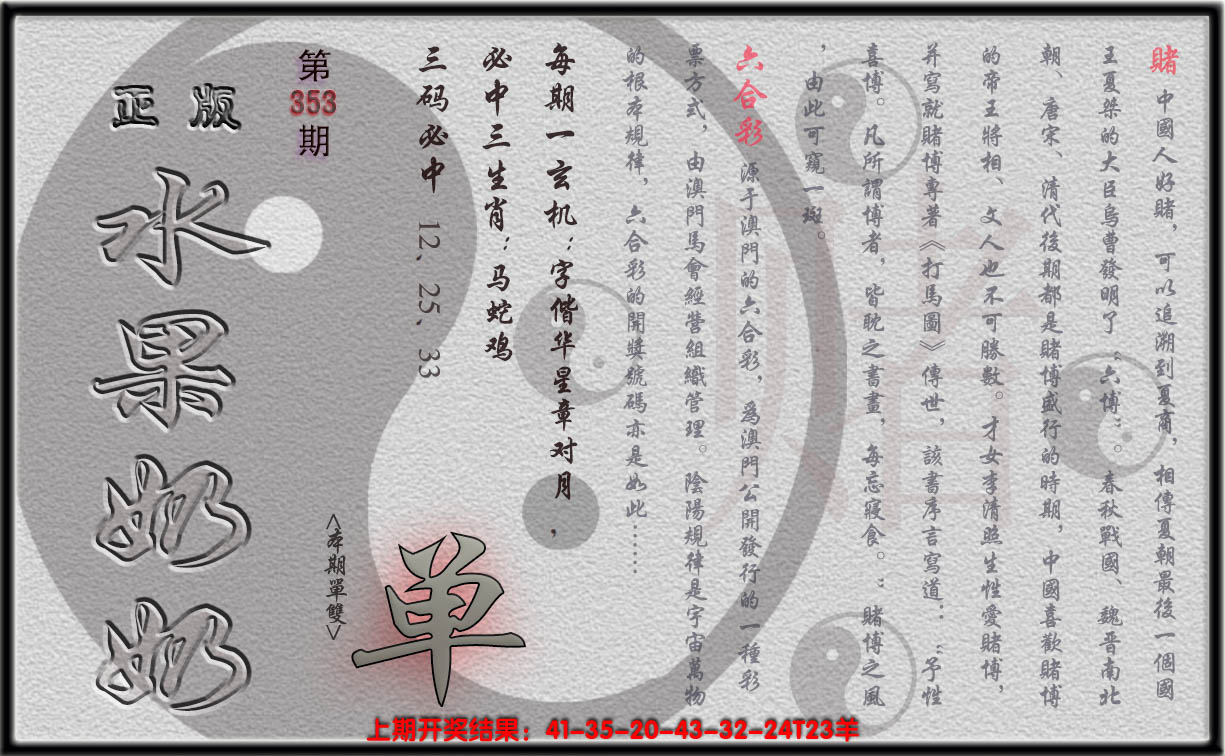 賭 中國人好賭，可以追溯到夏商，相傳夏朝最後一個國
王夏桀的大臣烏曹發明了“六博”。春秋戰國、魏晉南北
朝、唐宋、清代後期都是賭博盛行的時期，中國喜歡賭博
的帝王將相、文人也不可勝數。才女李清照生性愛賭博，
并寫就賭博專著《打馬圖》傳世，該書序言寫道：“予性
喜博。凡所謂博者，皆耽之書畫，每忘寢食。”賭博之風
，由此可窺一斑。
六合彩 源于澳門的六合彩，爲澳門公開發行的一種彩
票方式，由澳門馬會經營組織管理。陰陽規律是宇宙萬物
的根本規律，六合彩的開獎號碼亦是如此……
每期一玄机：字偕华星章对月，
必中三生肖：马蛇鸡
三码必中 12、25、33
<本期單雙>
单
第
353
期
正版
水果奶奶
赌
上期开奖结果：41-35-20-43-32-24T23羊